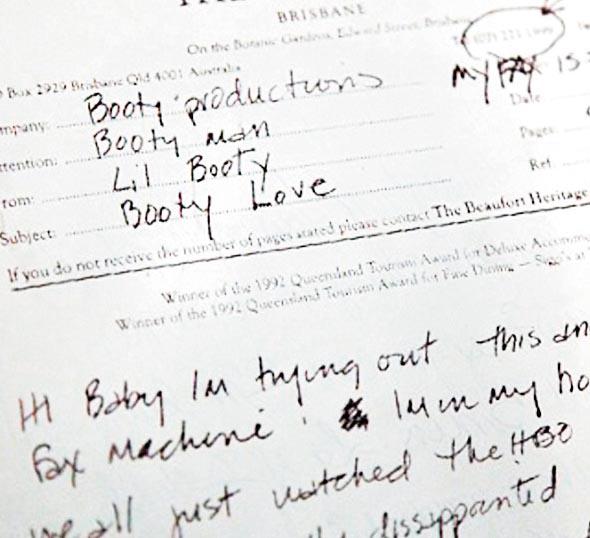 BRISBANE
On the Botanic Gardens, Edward Street, Brisbane
Box 2929 Brisbane Qld 4001 Australia
mpany: Booty productions
my FAX is
tention: Booty man
Date
rom: Lil Booty
Pages
Subject: Booty Love
Ref.
If you do not receive the number of pages stated please contact The Beaufort Heritage
Winner of the 1992 Queensland Tourism Award for Deluxe Accomm
Winner of the 1992 Queensland Tourism Award for Fine Dining — Siggi's at
HI Baby Im trying out this
fax machine! Im in my
all just watched the HBO
dissappointed